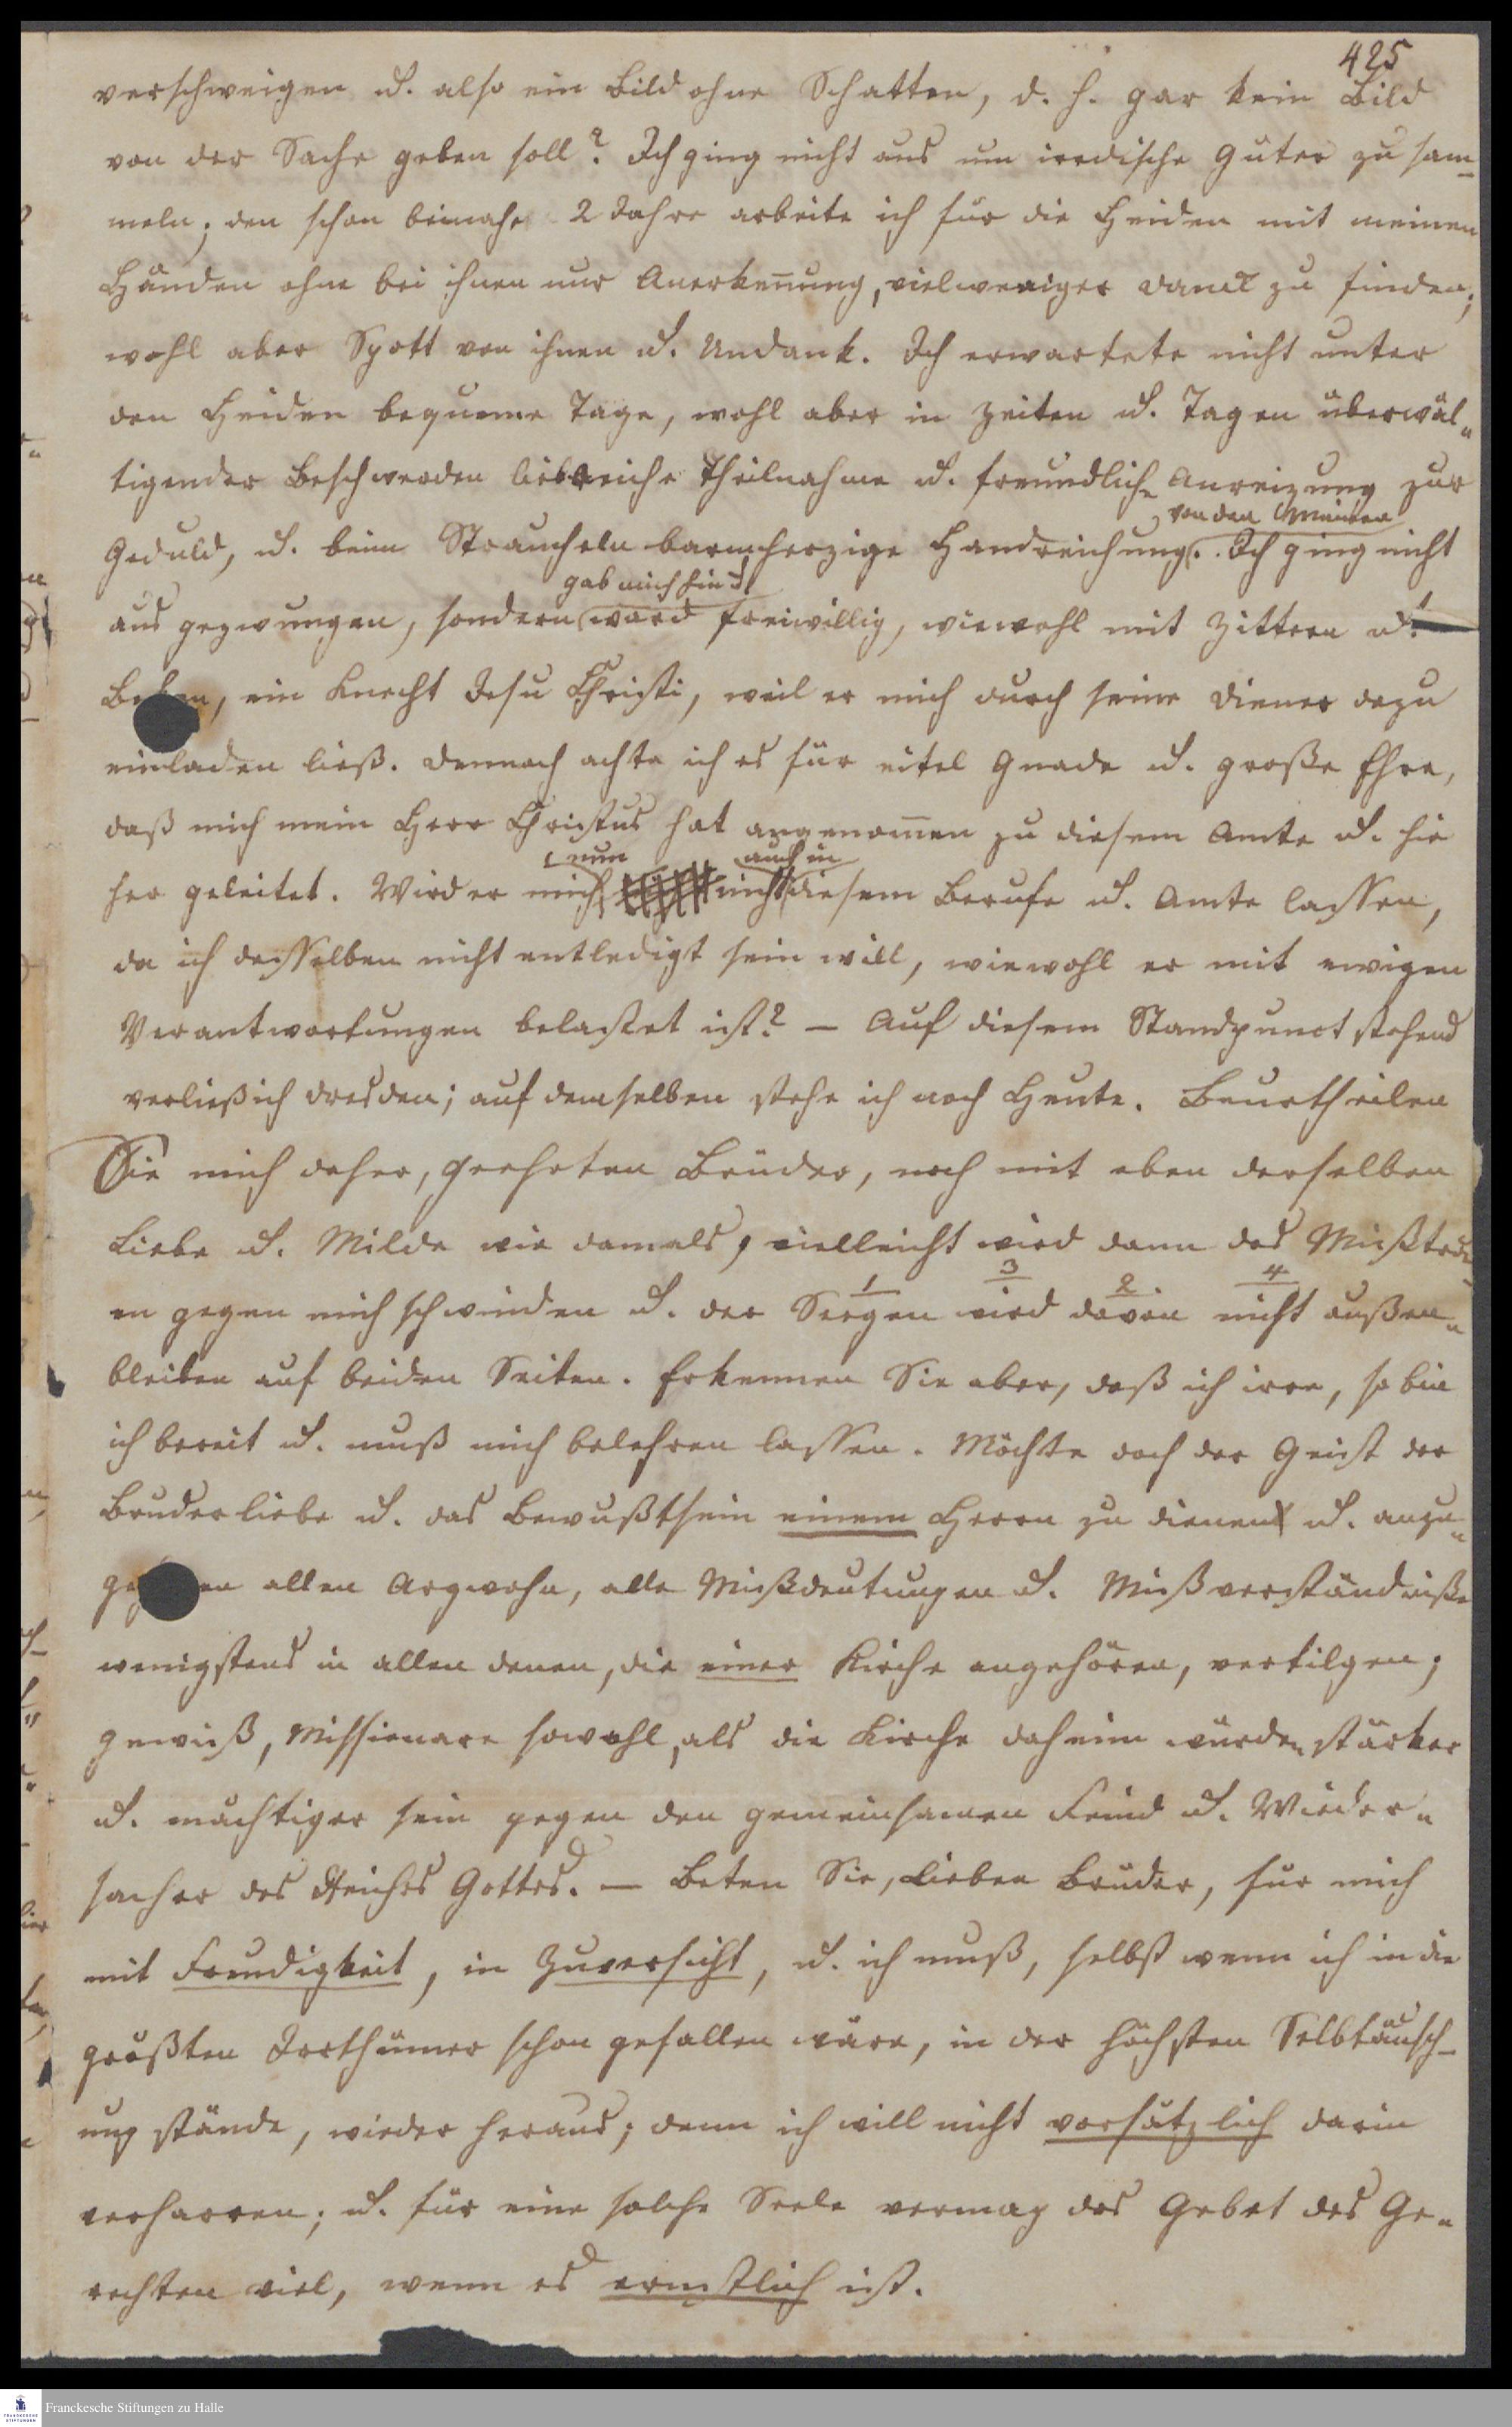 425
verschweigen u. also ein Bild ohne Schatten, d. h. gar kein Bild
von der Sache geben soll? Ich ging nicht aus um irrdische Güter zu sam-
meln; den schon beinahe 2 Jahre arbeite ich für die Heiden mit meinen
Händen ohne bei ihnen nur Anerkeñung, vielweniger Dank zu finden;
wohl aber Spott von ihnen u. Undank. Ich erwartete nicht unter
den Heiden bequeme Tage, wohl aber in Zeiten u. Tagen überwäl-
tigender Beschwerden liebreiche Theilnahme u. freundliche Anreizung zur
von den Meinen
Geduld, u. beim Straucheln barmherzige Handreichung. Ich ging nicht
gab mich hin u.
aus gezwungen, sondern ward freiwillig, wiewohl mit Zittern u.
Beben, ein Knecht Jesu Christi, weil er mich durch seine Diener dazu
einladen ließ. Dennoch achte ich es für eitel Gnade u. große Ehre,
daß mich mein Herr Christus hat angenom̄en zu diesem Amte u. hie
nun auch in
her geleitet. Wird er mich nicht diesem Berufe u. Amte lassen,
da ich desselben nicht entledigt sein will, wiewohl er mit ewigen
Verantwortungen belastet ist? – Auf diesem Standpunct stehend
verließ ich Dresden; auf demselben stehe ich noch Heute. Beurtheilen
Sie mich daher, geehrten Brüder, noch mit eben derselben
Liebe u. Milde wie damals, vielleicht wird dann das Mißtrau-
1 3 2 4
en gegen mich schwinden u. der Seegen wird davon nicht außen-
bleiben auf beiden Seiten. Erkennen Sie aber, daß ich irre, so bin
ich bereit u. muß mich belehren lassen. Möchte doch der Geist der
Bruderliebe u. das Bewußtsein einem Herrn zu dienen u. anzu-
gehören allen Argwohn, alle Mißdeutungen u. Mißverständniße
wenigstens in allen denen, die einer Kirche angehören, vertilgen;
gewiß, Missionare sowohl, als die Kirche daheim würden stärker
u. mächtiger sein gegen den gemeinsamen Feind u. Wieder-
sacher des Reiches Gottes. – Beten Sie, lieben Brüder, für mich
mit Freudigkeit, in Zuversicht, u. ich muß, selbst wenn ich in die
größten Irrthümer schon gefallen wäre, in der höchsten Selbtäusch-
ung stände, wieder heraus; denn ich will nicht vorsätzlich darin
verharren; u. für eine solche Seele vermag das Gebet des Ge-
rechten viel, wenn es ernstlich ist.
Franckesche Stiftungen zu Halle